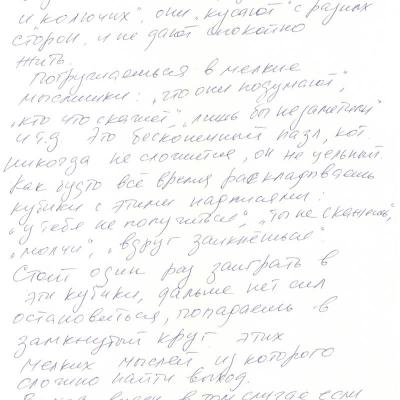 и колючих", они "кусают" с разных
сторон, и не дают спокойно
жить.
Погружаешься в мелкие
мыслишки: "что они подумают",
"кто что скажет", "лишь бы не заметили"
и т.д. Это бесконечный пазл, кот.
никогда не сложится, он не цельный.
Как будто всё время раскладываешь
кубики с этими надписями:
"у тебя не получиться", "ты не скажешь",
"молчи", "вдруг запнёшься".
Стоит один раз заиграть в
эти кубики, дальше нет сил
остановиться, попадаешь в
замкнутый круг этих
мелких мыслей из которого
сложно найти выход.
в том случае если